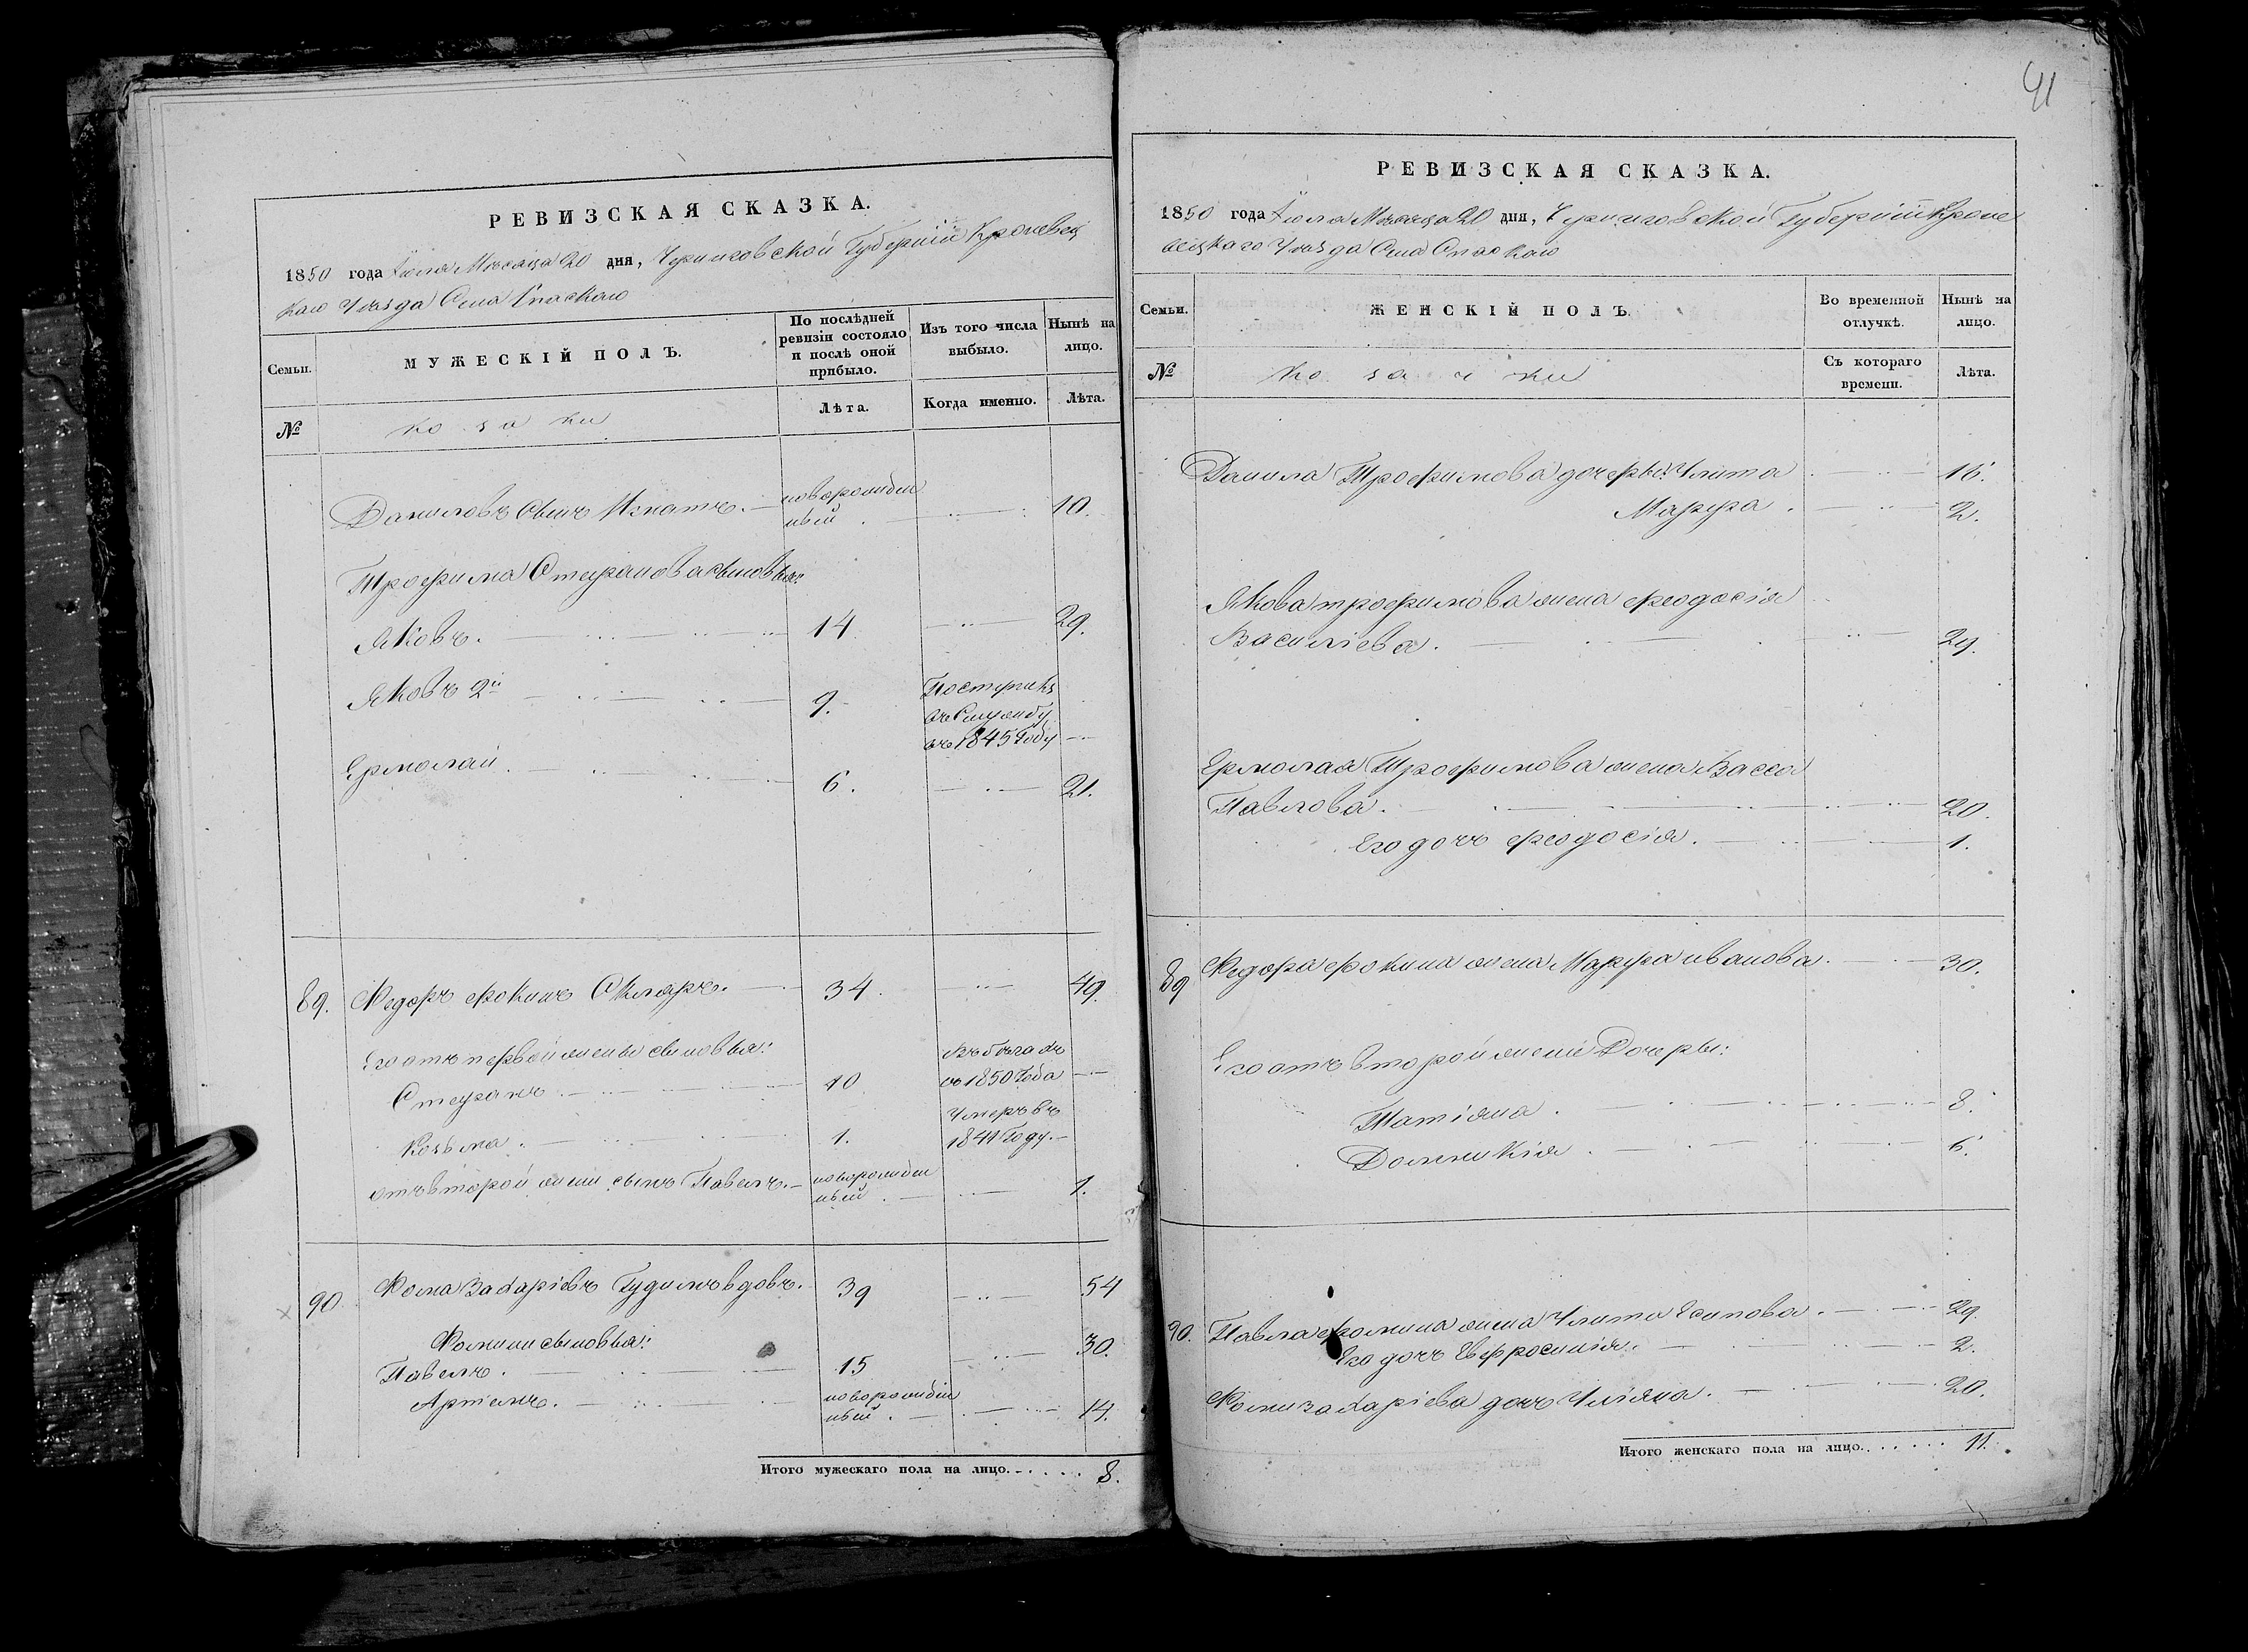 41
РЕВИЗСКАЯ СКАЗКА.
1850 года Іюля Мѣсяца 20 дня, Черниговской Губерніи Кролевец
каго Уѣзда Села Спаскаго
Семьи.
МУЖЕСКІЙ ПОЛЪ.
По послѣдней
ревизіи состояло
и послѣ оной
прибыло.
Изъ того числа
выбыло.
Нынѣ на
лицо.
№
козаки
Лѣта.
Когда именно.
Лѣта.
Даниловъ сынъ Игнатъ. новорожден
ный 10.
Трофима Стефанова сыновья:
Яковъ. 14 29.
Яковъ 2й 9. Поступилъ
въ Службу
въ 1845 Году
Ермолай 6. 21.
89. Федоръ Фокинъ Скляръ. 34. 49.
Его отъ первой жены сыновья:
Стефанъ 10 Въ бѣгахъ
съ 1850 Года
Козьма. 1. Умеръ въ
1841 Году.
отъ второй жени сынъ Павелъ. новорожден
ный 1.
90. Фома Захаріевъ Гудимъ вдовъ. 39 54
Фомини сыновья:
Павелъ. 15 30.
Артемъ. новорожден
ный. 14.
Итого мужескаго пола на лицо. 8.
РЕВИЗСКАЯ СКАЗКА.
1850 года Іюля Мѣсяца 20 дня, Черниговской Губерніи Кроле
вецкаго Уѣзда Села Спаскаго
Семьи.
ЖЕНСКІЙ ПОЛЪ.
Во временной
отлучкѣ.
Нынѣ на
лицо.
№
козачки
Съ котораго
времени.
Лѣта.
Данила Трофимова дочеры: Улита 16.
Марфа 2.
Якова трофимова жена феодосія
Василіева. 29.
Ермолая Трофимова жена Васса
Павлова. 20.
Его дочъ феодосія. 1.
89 Федора фокина жена Марфа иванова. 30.
Его отъ второй жени Дочеры:
Татіяна. 8.
Домникія. 6.
90. Павла фомина жена Улита Есипова. 29.
Его дочъ Евфросинія. 2.
Фоми захаріева дочъ Уліяна. 20.
Итого женскаго пола на лицо. 11.